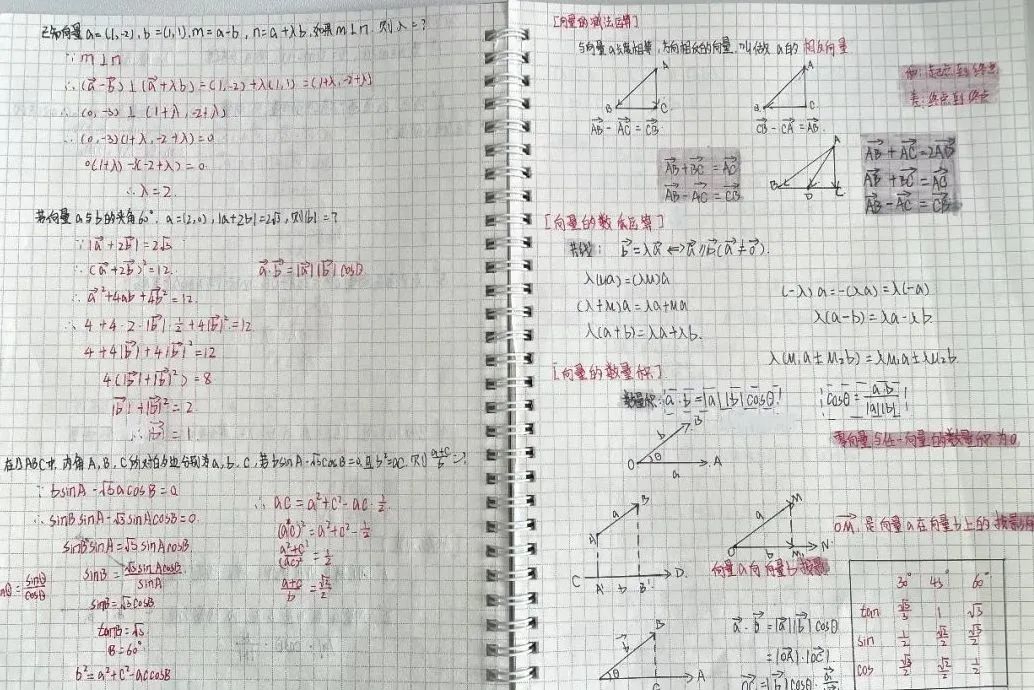 已知向量a=(1,-2),b=(1,1),m=a-b,n=a+λb,如果m⊥n,则λ=?
∵m⊥n
∴(a-b)⊥(a+λb)=(1,-2)+λ(1,1)=(1+λ,-2+λ)
∴(0,-3)⊥(1+λ,-2+λ)
∴(0,-3)(1+λ,-2+λ)=0
0(1+λ)-3(-2+λ)=0
∴λ=2
若向量a与b的夹角60°,a=(2,0),|a+2b|=2√3,则|b|=?
∵|a+2b|=2√3
∴(a+2b)²=12. a·b=|a||b|cosθ
∴a²+4ab+4b²=12.
∴4+4·2·|b|·1/2+4|b|²=12
4+4|b|+4|b|²=12
4(|b|+|b|²)=8
|b|+|b|²=2
∴|b|=1
在△ABC中,内角A,B,C所对的边分别为a,b,c,若bsinA-√3acosB=0,且b²=ac,则(a+c)/b=?
∵bsinA-√3acosB=0
∴sinBsinA-√3sinAcosB=0
sinBsinA=√3sinAcosB
sinB=√3sinAcosB/sinA
sinθ/cosθ
sinB=√3cosB
tanB=√3
B=60°
b²=a²+c²-accosB
∴ac=a²+c²-ac·1/2.
(ac)²=a²+c²-1/2
(a²+c²)/(ac)²=1/2
(a+c)/b=√2/2
[向量的减法运算]
与向量a长度相等,方向相反的向量,叫做a的相反向量
和:起点到终点
差:终点到终点
A
B C
AB-AC=CB
A
B C
CB-CA=AB
AB+BC=AC
AB-AC=CB
A
B D C
AB+AC=2AD
AB+BC=AC
AB-AC=CB
[向量的数乘运算]
共线: b=λa⇔a∥b(a≠0).
λ(μa)=(λμ)a
(λ+μ)a=λa+μa
λ(a+b)=λa+λb.
(-λ)a=-(λa)=λ(-a)
λ(a-b)=λa-λb
λ(μ₁a±μ₂b)=λμ₁a±λμ₂b
[向量的数量积]
数量积:a·b=|a||b|cosθ
cosθ=a·b/|a||b|
零向量与任一向量的数量积为0
b B
O θ a A
B
a
A
C A' b B' D
M
a
O b M₁ N
OM₁是向量a在向量b上的投影
向量a向向量b投影
30° 45° 60°
tan √3/3 1 √3
sin 1/2 √2/2 √3/2
cos √3/2 √2/2 1/2
B
b
θ C A
a·b=|a||b|cosθ
=|OA|·|OC|
OC=|b|cosθ